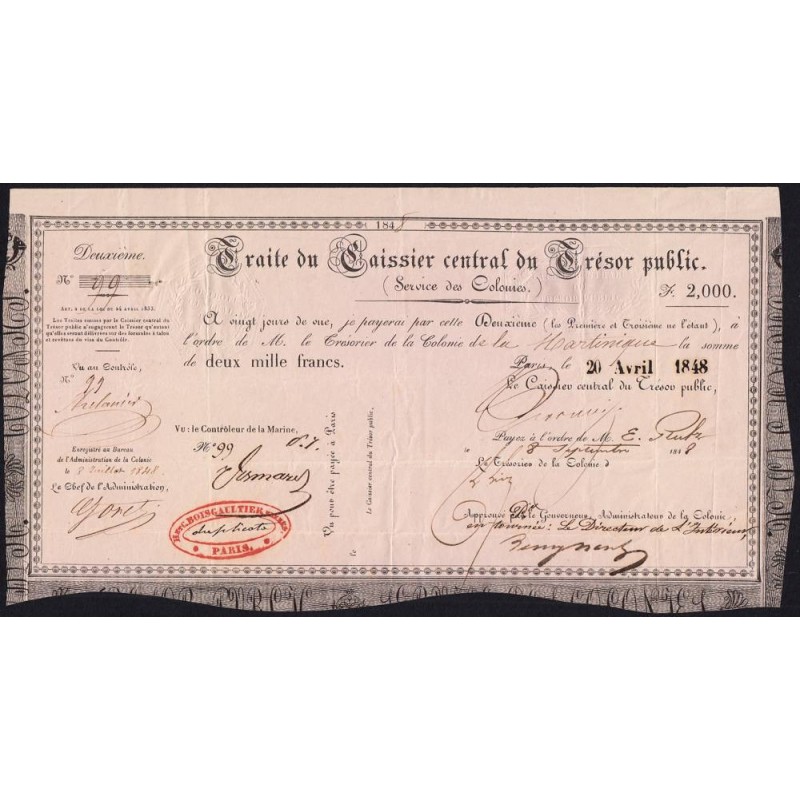 1848
Deuxième.
Nº 99
ART. 2 DE LA LOI DU 24 AVRIL 1833.
Les Traites émises par le Caissier central du
Trésor public n'engageront le Trésor qu'autant
qu'elles seront délivrées sur des formules à talon
et revêtues du visa du Contrôle.
Vu au Contrôle,
Nº 99
Enregistré au Bureau
de l'Administration de la Colonie
le 8 Juillet 1848.
Le Chef de l'Administration,
Traite du Caissier central du Trésor public.
(Service des Colonies.)
F. 2,000.
A vingt jours de vue, je payerai par cette Deuxième (les Première et Troisième ne l'étant), à
l'ordre de M. le Trésorier de la Colonie de la Martinique la somme
de deux mille francs.
Paris, le 20 Avril 1848
Le Caissier central du Trésor public,
Vu: le Contrôleur de la Marine,
Nº 99
Vu pour être payée à Paris
Le Caissier central du Trésor public,
Payez à l'ordre de M. E. Rutz
8 Septembre 1848
Le Trésorier de la Colonie d
Approuvé Pr le Gouverneur, Administrateur de la Colonie
en tournée: Le Directeur de l'Intérieur,
BOISGAULTIER
duplicata
PARIS.